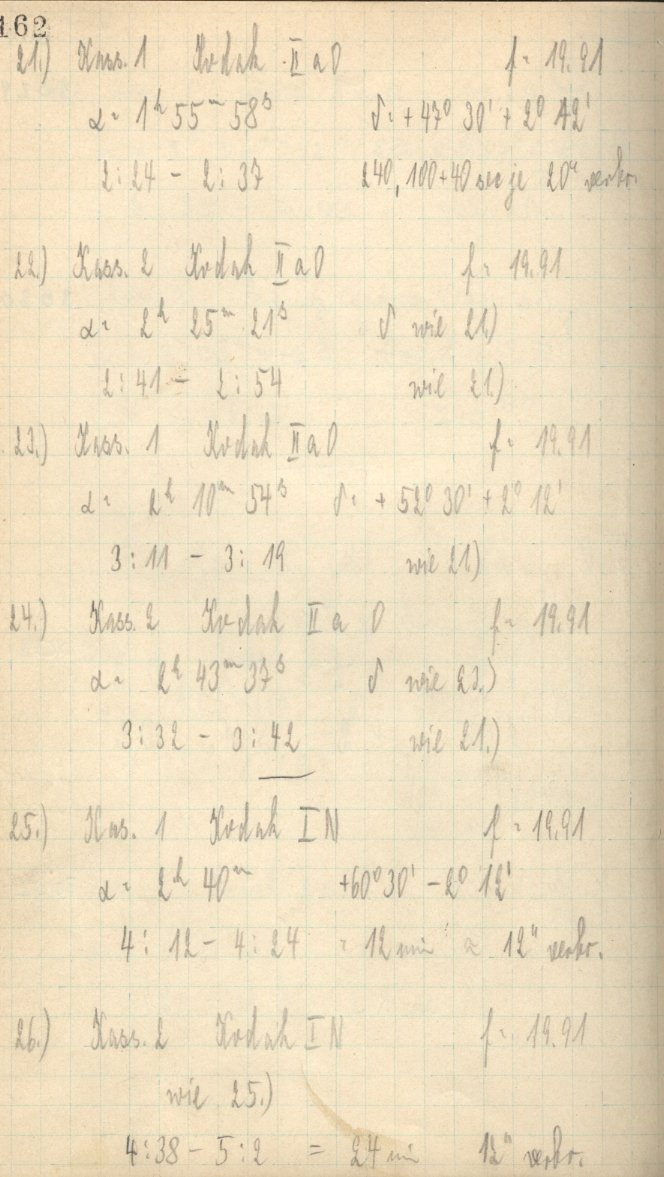 162
21.) Kass. 1 Kodak II a O f = 19.91
α = 1ʰ 55ᵐ 58ˢ δ = +47° 30' + 2° 12'
2:24 - 2:37 240, 100+40 sec je 20" verbr.
22.) Kass. 2 Kodak II a O f = 19.91
α = 2ʰ 25ᵐ 21ˢ δ wie 21.)
2:41 - 2:54 wie 21.)
23.) Kass. 1 Kodak II a O f = 19.91
α = 2ʰ 10ᵐ 54ˢ δ = +52° 30' + 2° 12'
3:11 - 3:19 wie 21.)
24.) Kass. 2 Kodak II a O f = 19.91
α = 2ʰ 43ᵐ 37ˢ δ wie 23.)
3:32 - 3:42 wie 21.)
25.) Kas. 1 Kodak I N f = 19.91
α = 2ʰ 40ᵐ +60° 30' - 2° 12'
4:12 - 4:24 = 12 min 12" verbr.
26.) Kass. 2 Kodak I N f = 19.91
wie 25.)
4:38 - 5:2 = 24 min 12" verbr.